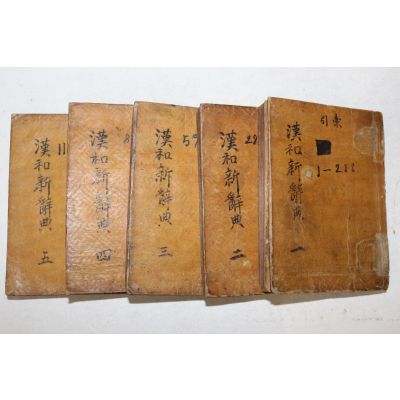 漢和新辭典 五
11
漢和新辭典 四
8
漢和新辭典 三
57
漢和新辭典 二
28
索引
1-288
漢和新辭典 一